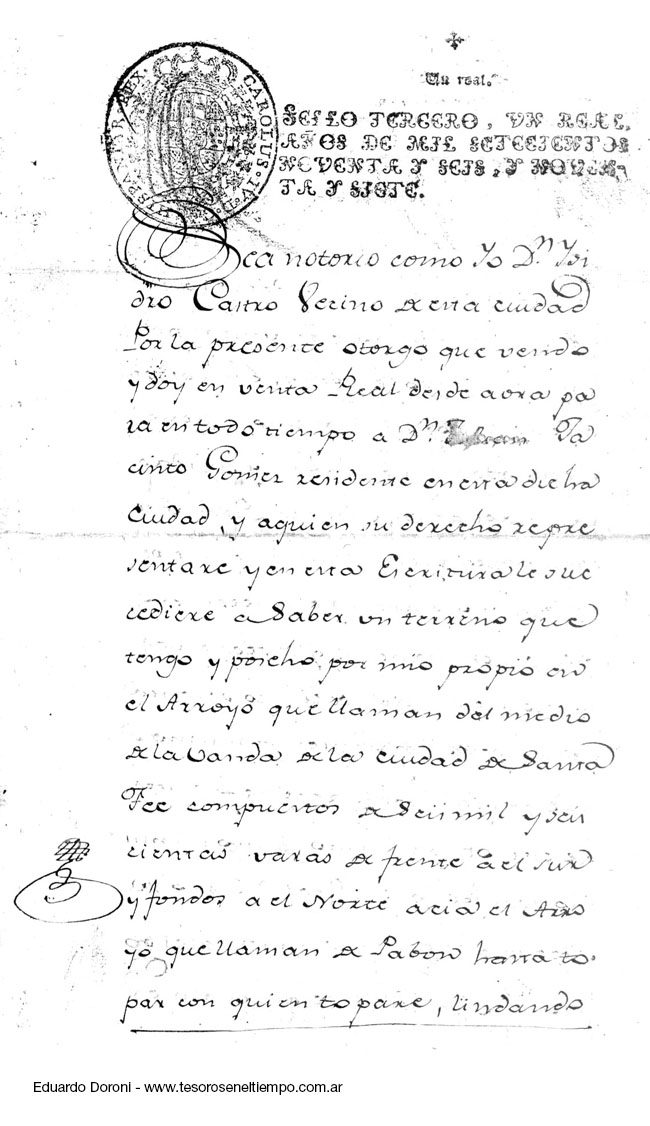 Un real.
HISPANIAR. REX. CAROLUS. IV. D. G.
SELLO TERCERO, VN REAL,
AÑOS DE MIL SETECIENTOS
NOVENTA Y SEIS, Y NOVEN-
TA Y SIETE.
Sea notorio como Yo Dⁿ Isi
dro Castro Vecino de esta ciudad
Por la presente otorgo que vendo
y doy en venta Real desde aora pa
ra en todo tiempo a Dⁿ Ja
cinto Gomez residente en esta dicha
Ciudad, y a quien su derecho repre
sentare y en esta Escritura le suc
cediere a Saber un terreno que
tengo y por mio propio en
el Arroyo que llaman del medio
de la Vanda de la ciudad de Santa
Fee compuestos de Seis mil y seis
cientas varas de frente a el sur
y fondos a el Norte acia el Arro
yo que llaman de Pabon hasta to-
par con quien topare, lindando
Eduardo Doroni - www.tesoroseneltiempo.com.ar